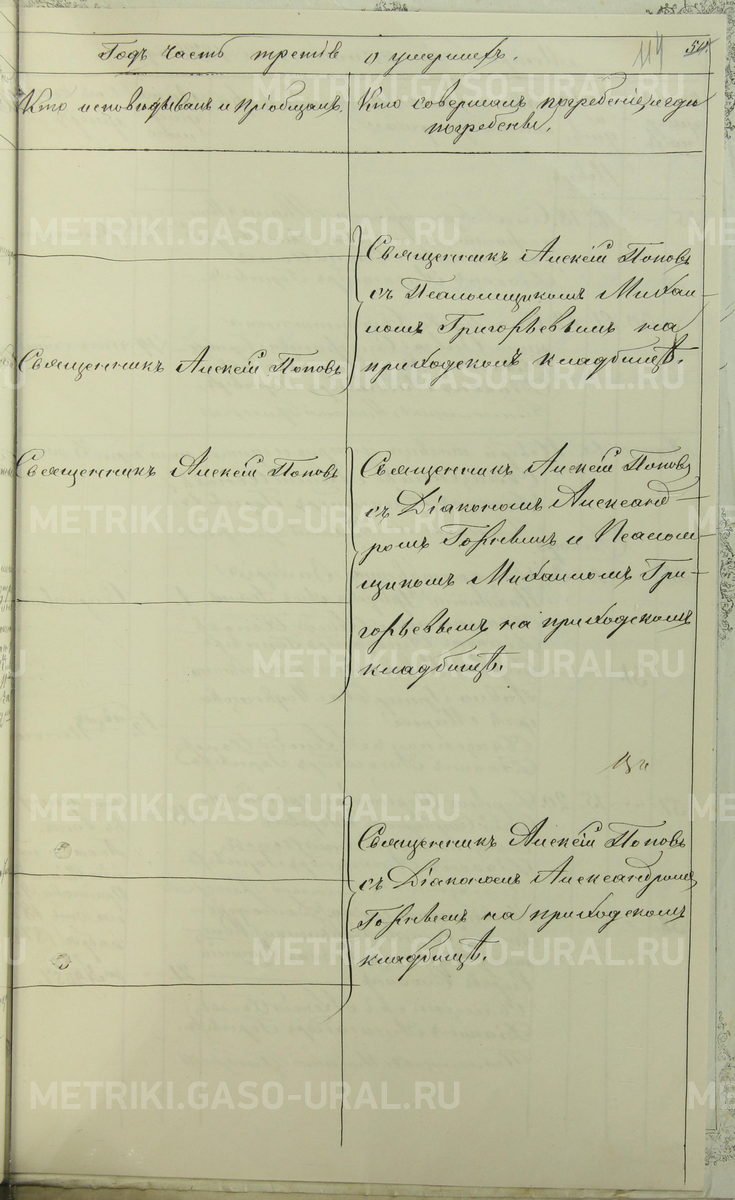 Годъ часть третія о умершихъ.
114
50.
Кто исповѣдывалъ и пріобщалъ.
Кто совершалъ погребеніе и гдѣ
погребены.
Священникъ Алексій Поповъ
съ Псаломщикомъ Михаи-
ломъ Григорьевымъ на
приходскомъ кладбищѣ.
Священникъ Алексій Поповъ
Священникъ Алексій Поповъ
Священникъ Алексій Поповъ
съ Діакономъ Александ-
ромъ и Псалом-
щикомъ Михаиломъ Гри-
горьевымъ на приходскомъ
кладбищѣ.
Священникъ Алексій Поповъ
съ Діакономъ Александромъ
на приходскомъ
кладбищѣ.
METRIKI.GASO-URAL.RU
METRIKI.GASO-URAL.RU
METRIKI.GASO-URAL.RU
METRIKI.GASO-URAL.RU
METRIKI.GASO-URAL.RU
METRIKI.GASO-URAL.RU
METRIKI.GASO-URAL.RU
METRIKI.GASO-URAL.RU